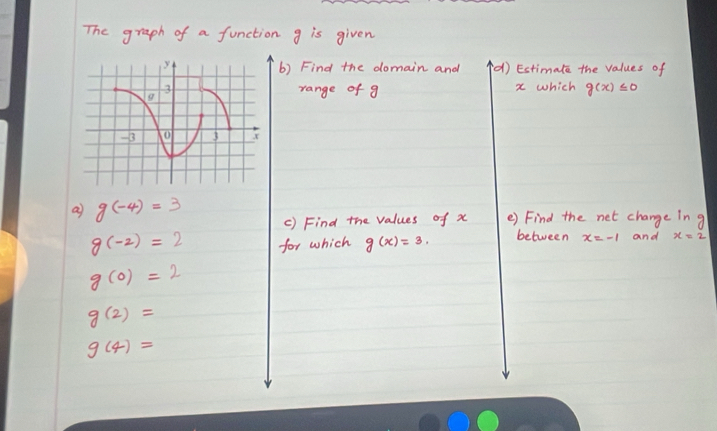 The graph of a function g is given
y
3
g
-3 0 3 x
a) g(-4) = 3
g(-2) = 2
g(0) = 2
g(2) =
g(4) =
b) Find the domain and
range of g
c) Find the values of x
for which g(x) = 3.
d) Estimate the values of
x which g(x) ≤ 0
e) Find the net change in g
between x = -1 and x = 2